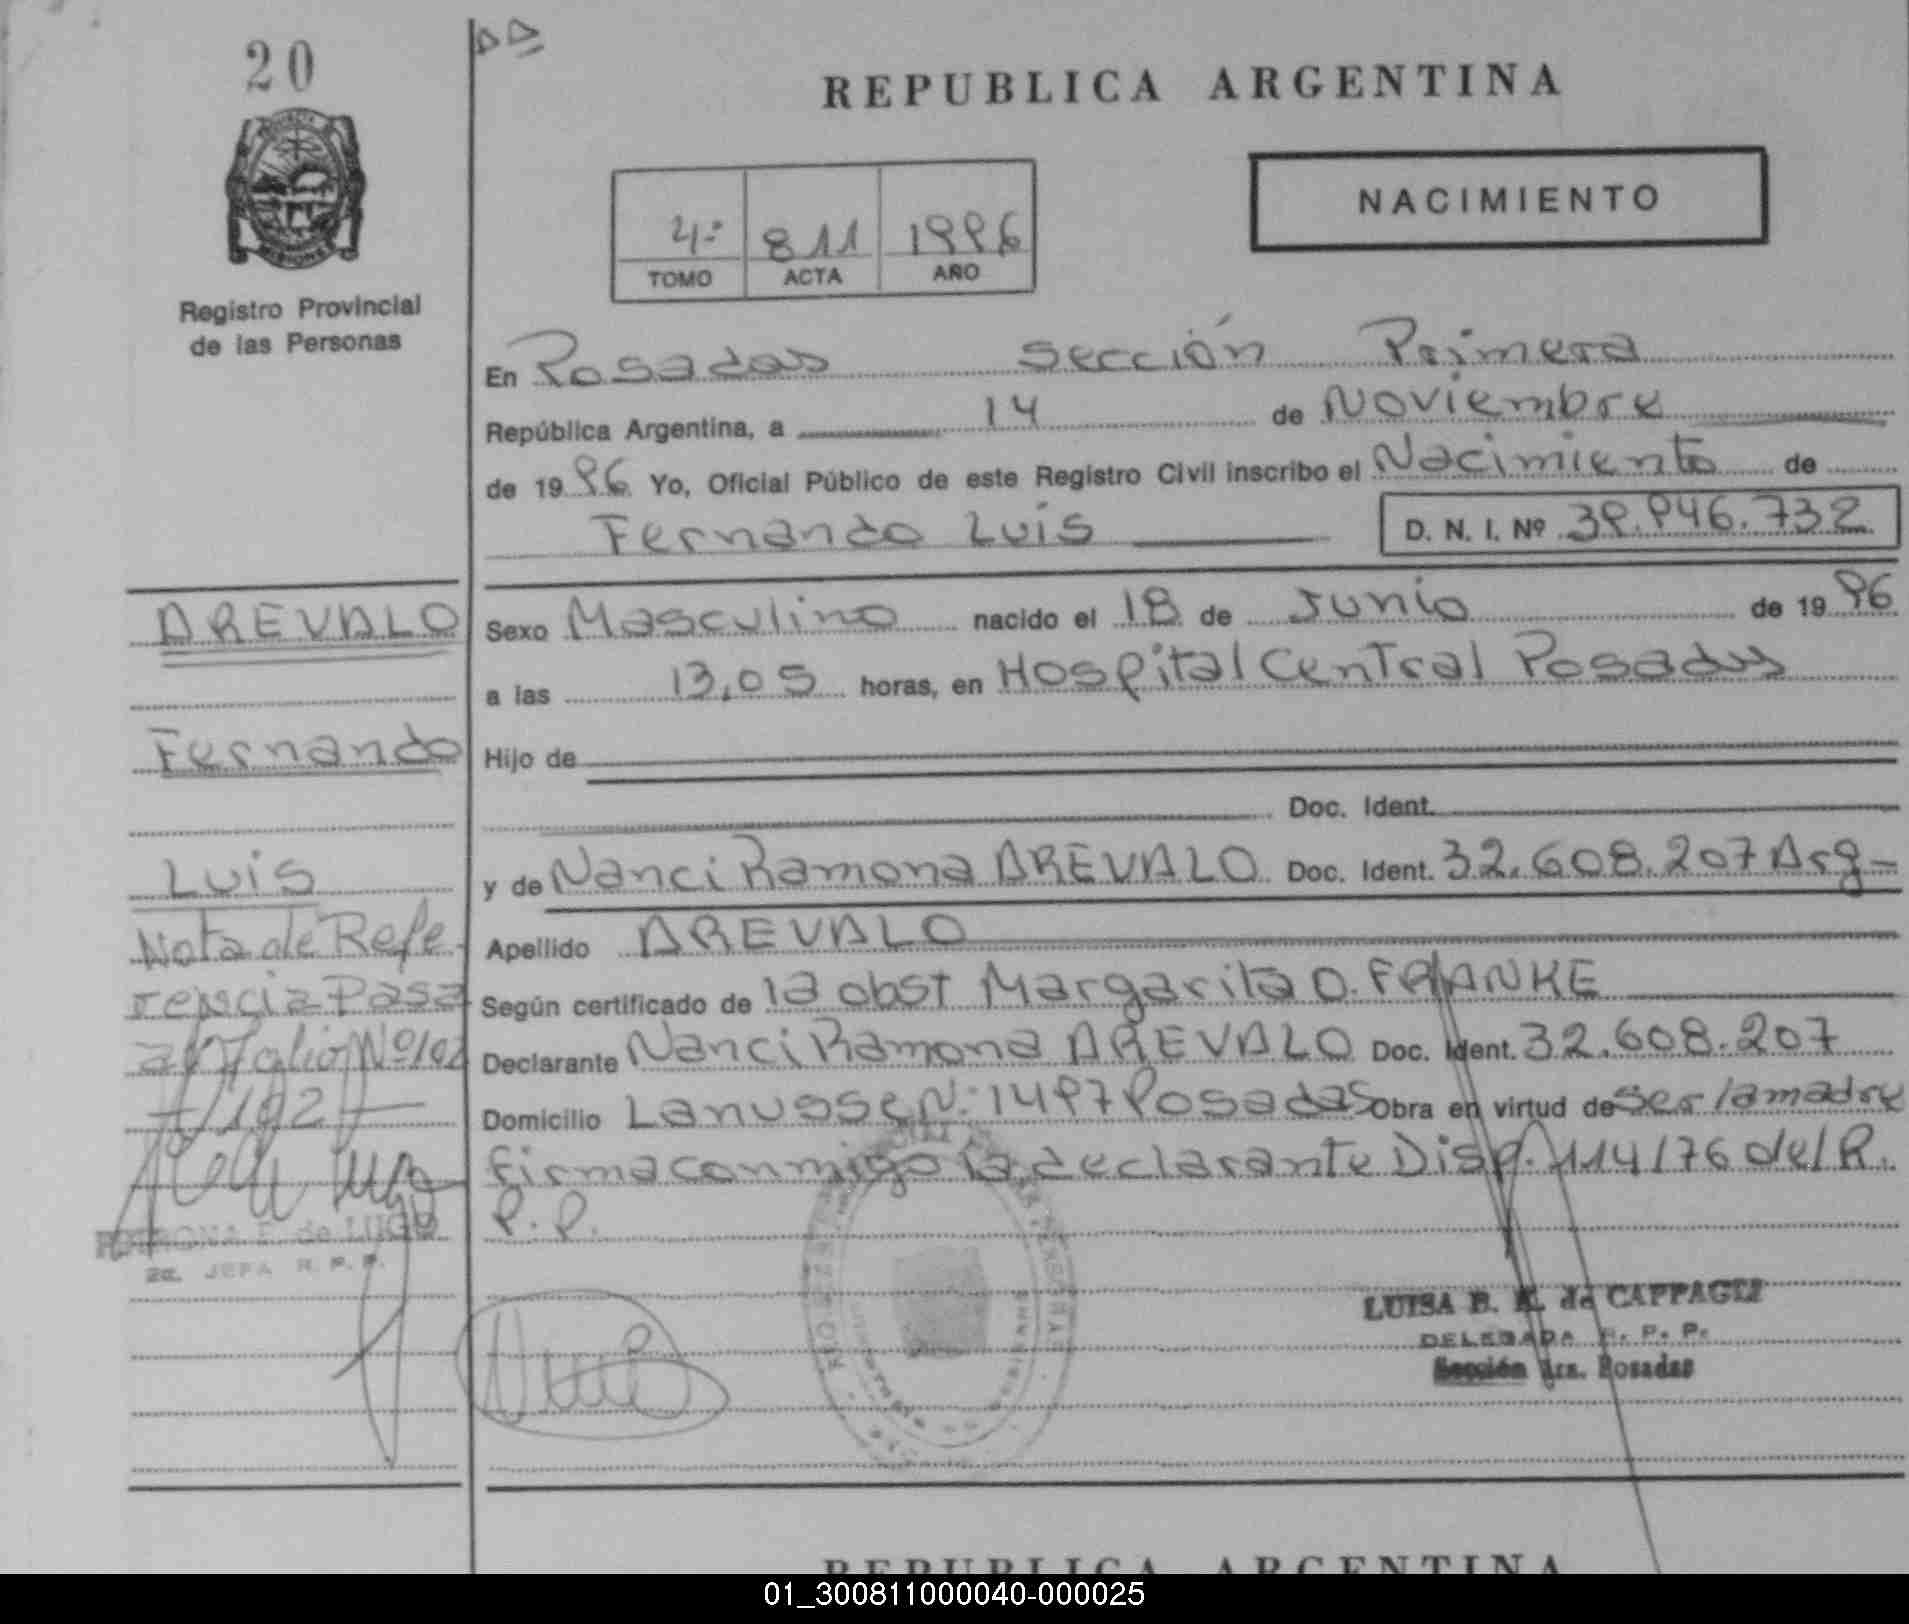 20
REPUBLICA ARGENTINA
NACIMIENTO
4º 811 1996
TOMO ACTA AÑO
Registro Provincial
de las Personas
En Posadas Sección Primera
República Argentina, a 14 de Noviembre
de 1996 Yo, Oficial Público de este Registro Civil inscribo el Nacimiento de
Fernando Luis D. N. I. Nº 39.946.732
AREVALO
Sexo Masculino nacido el 18 de Junio de 1996
a las 13,05 horas, en Hospital Central Posadas
Fernando
Hijo de
Doc. Ident.
Luis
y de Nanci Ramona AREVALO Doc. Ident. 32.608.207 Arg
Nota de Refe
Apellido AREVALO
rencia Pasa
Según certificado de la obst Margarita O. FRANKE
al folio Nº 192
Declarante Nanci Ramona AREVALO Doc. Ident. 32.608.207
192
Domicilio Lanusse Nº 1497 Posadas Obra en virtud de ser la madre
firma conmigo la declarante Disp. 114/76 del R.
P. P.
de LUGO
2a. JEFA R. P. P.
LUISA B. K. de CAPPAGLI
DELEGADA R. P. P.
Sección 1ra. Posadas
REPUBLICA ARGENTINA
01_300811000040-000025